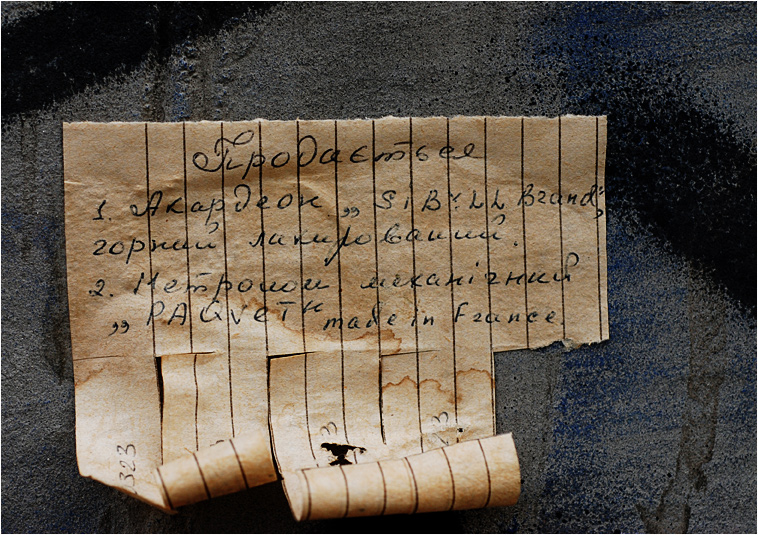 Продається
1. Акардеон „SiBYLL Brand”
горний лакирований.
2. Метроном механічний
„PAQveT" made in France
323
3
23